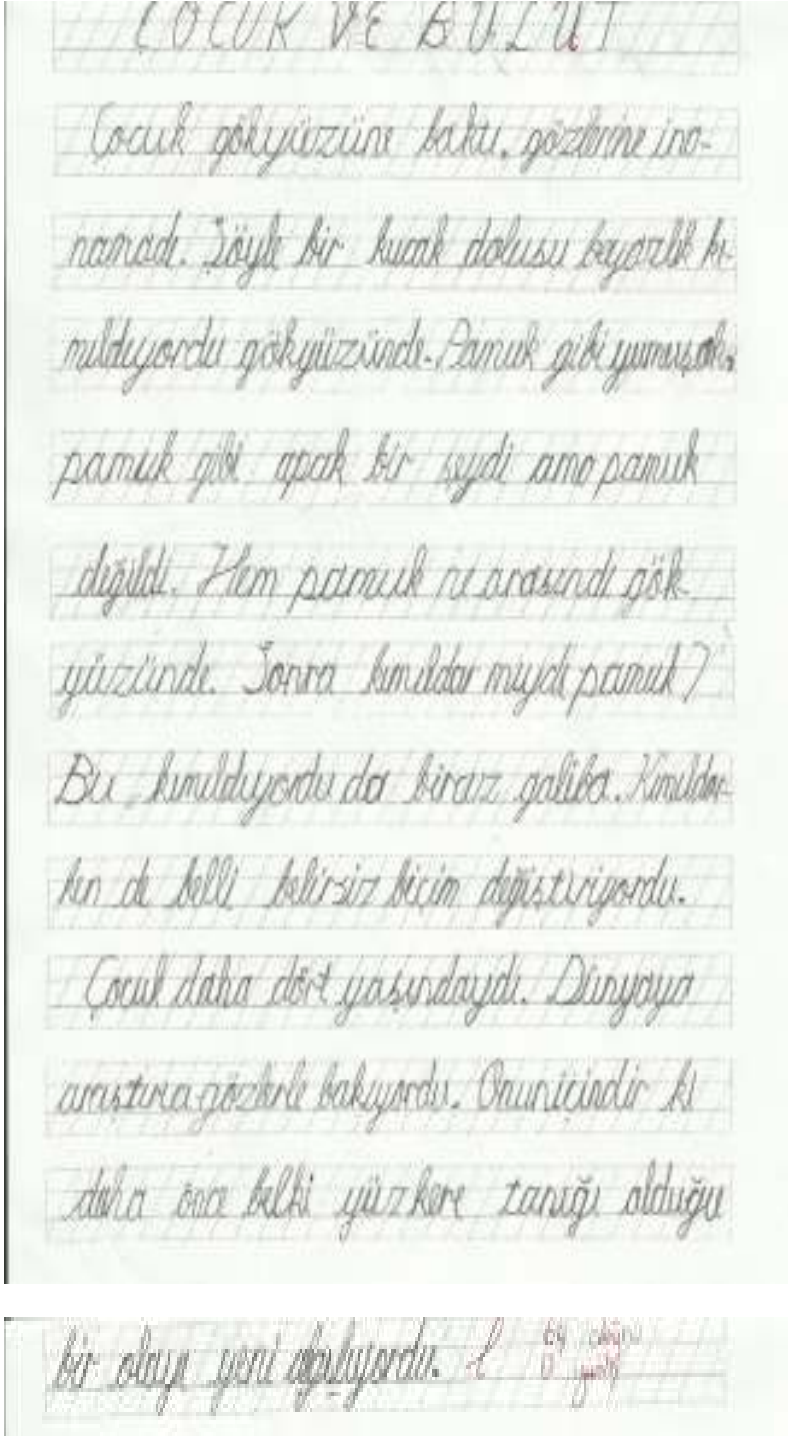 ÇOCUK VE BULUT
Çocuk gökyüzüne baktı. gözlerine ina-
namadı. Şöyle bir kucak dolusu beyazlık kı-
mıldıyordu gökyüzünde. Pamuk gibi yumuşak.
pamuk gibi apak bir şeydi ama pamuk
değildi. Hem pamuk ne arasındı gök-
yüzünde. Sonra kımıldar mıydı pamuk?
Bu, kımıldıyordu da biraz galiba. Kımıldar-
ken de belli belirsiz biçim değiştiriyordu.
Çocuk daha dört yaşındaydı. Dünyaya
araştırıcı gözlerle bakıyordu. Onuniçindir ki
daha önce belki yüzkere tanığı olduğu
bir olayı yeni algılıyordu.
doğru
0 yanlış